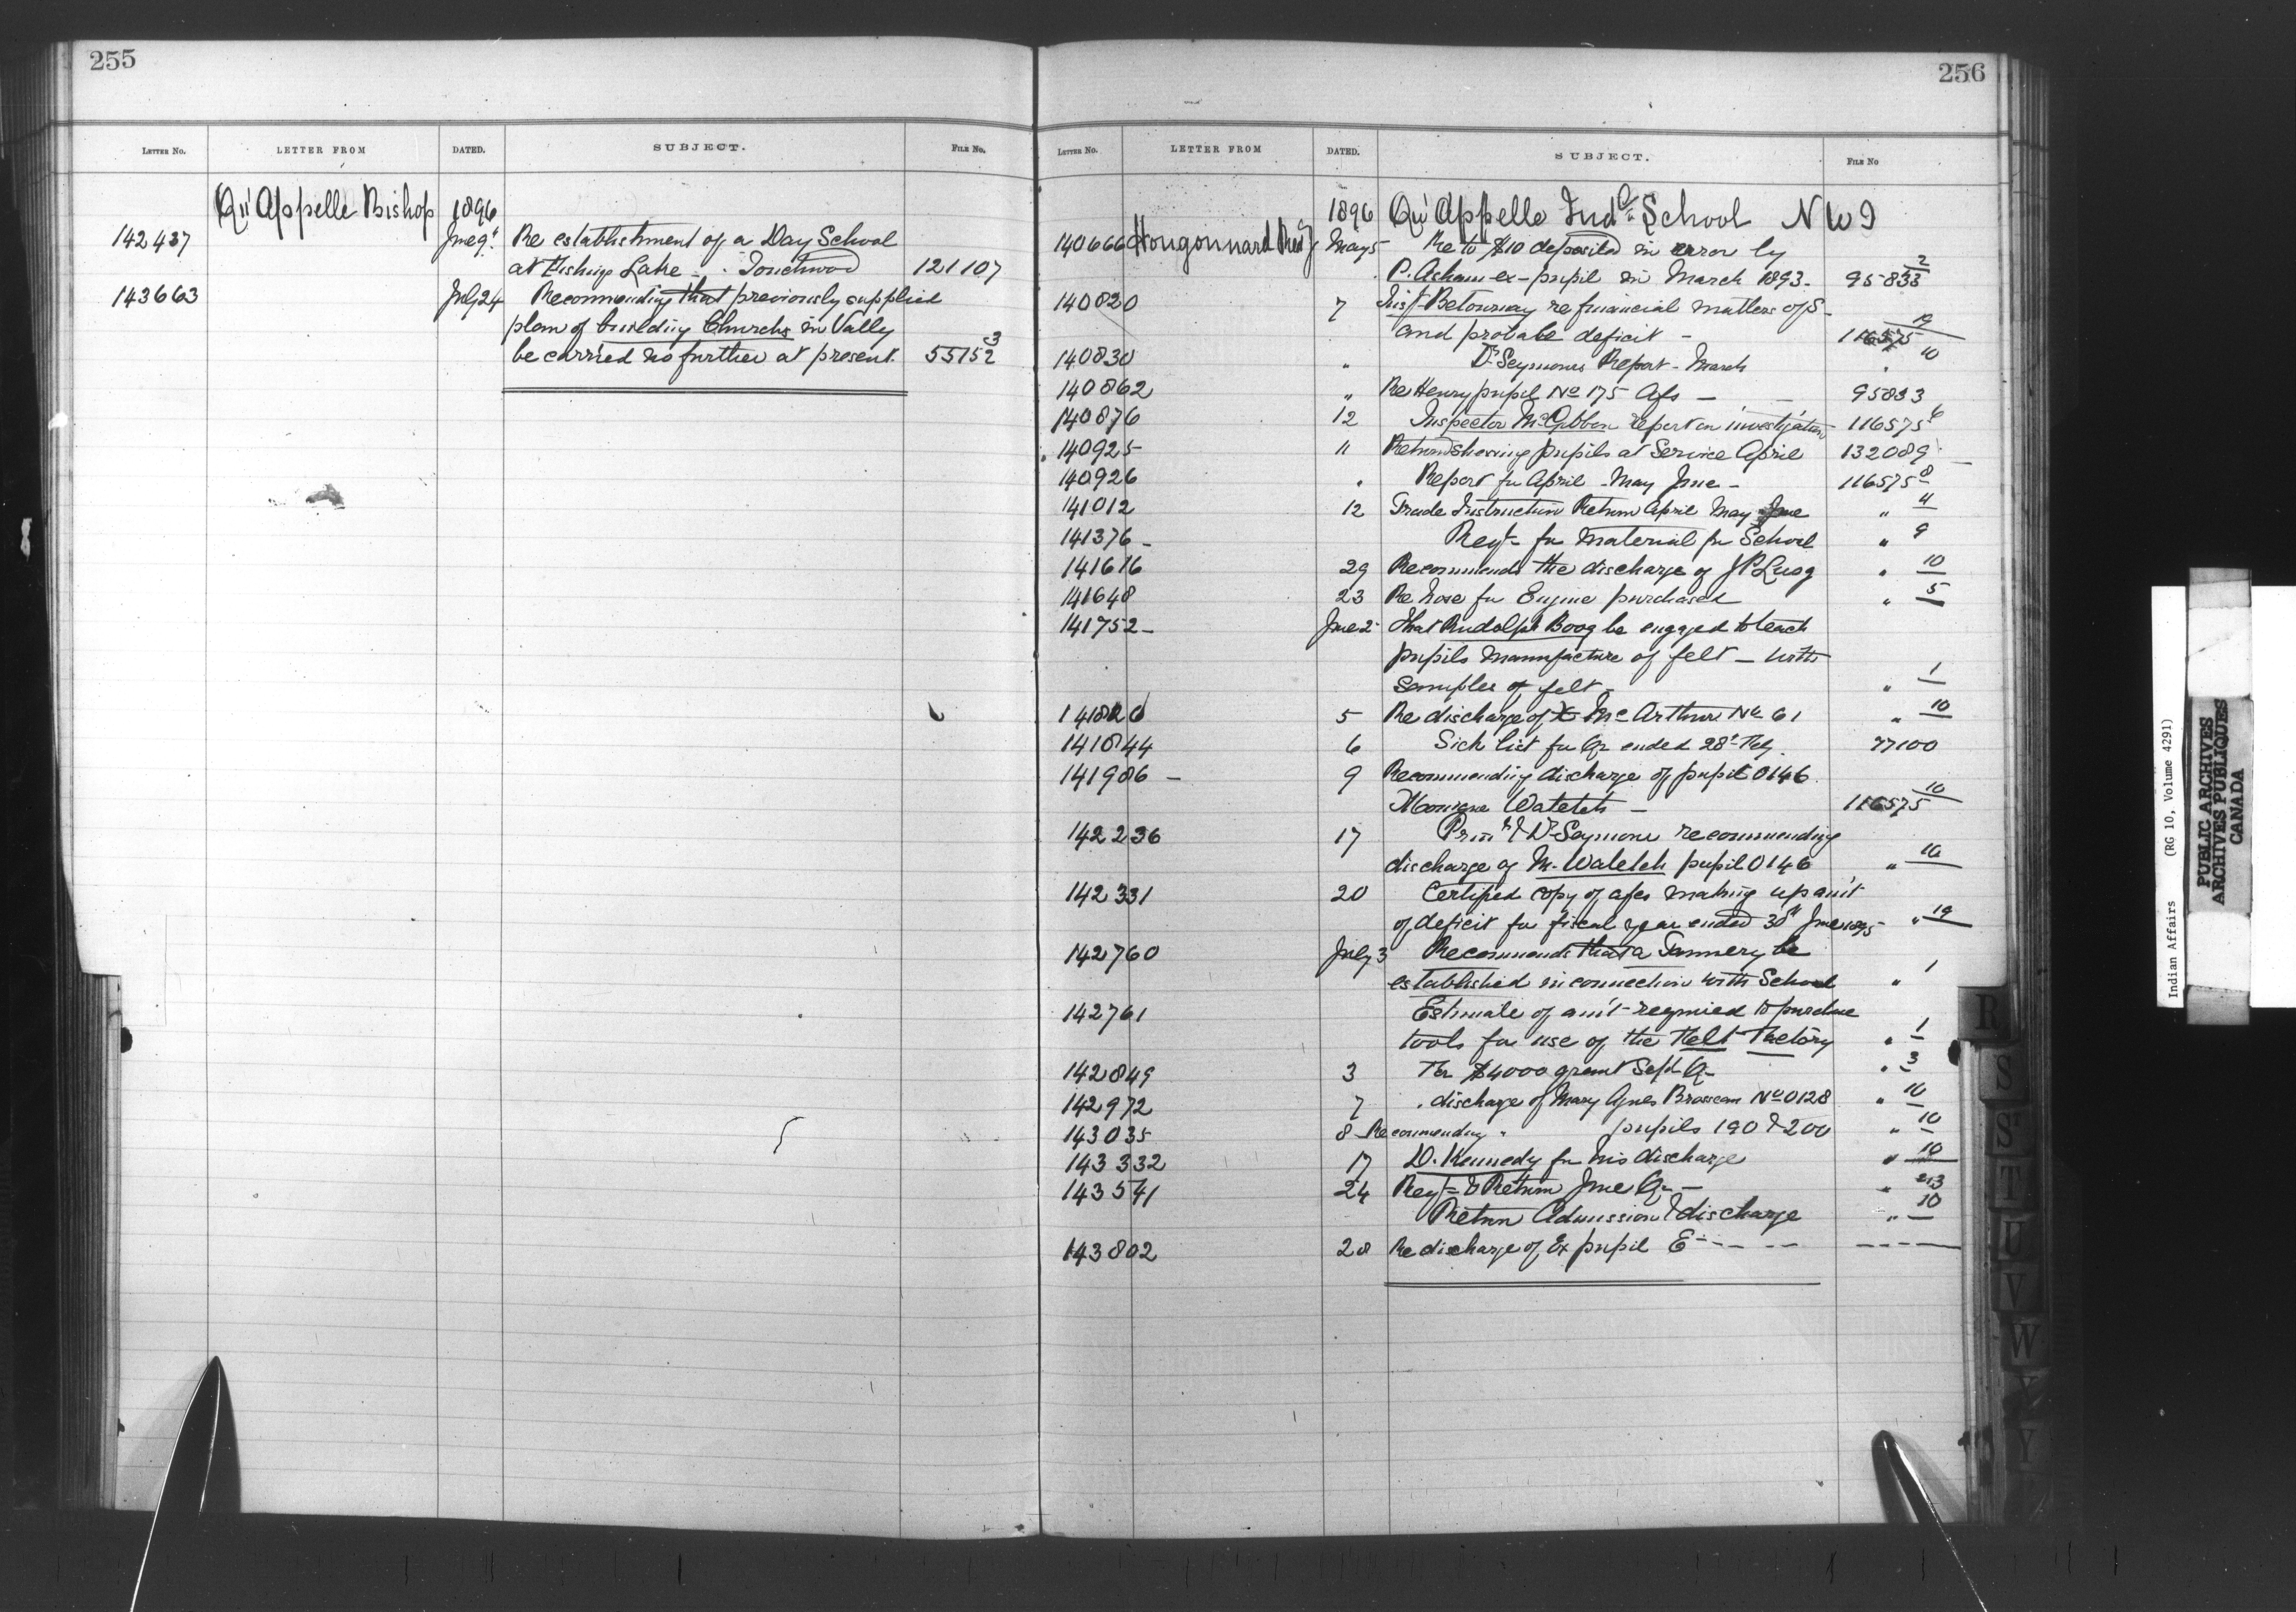 255
LETTER NO. LETTER FROM DATED. SUBJECT. FILE No.
Qu'Appelle Bishop 1896
142437 June 9" Re establishment of a Day School
at Fishing Lake - Touchwood 121107
143663 July 24 Recommending that previously supplied
plan of building Churchs in Vally
be carried no further at present. 55152 3
256
LETTER NO. LETTER FROM DATED. SUBJECT. FILE NO
1896 Qu'Appelle Indl School N W T
140666 Hougonnard Revd J May 5 Re to $10 deposited in error by
P. Asham ex-pupil in March 1893 - 95833 2
140820 7 Betournay re financial matters of S -
and probable deficit - 116575 19
140830 " Dr Seymours Report - March " 10
140862 " Re Henry pupil No 175 Afs - 95833
140876 12 Inspector McGibbon report on investigation 116575 6
140925 11 Return showing pupils at Service April 132089
140926 " Report for April - May June - 116575 8
141012 12 Trade Instruction Return April May June " 4
141376 - Reqt for material for School " 9
141616 29 Recommends the discharge of J P " 10
141648 23 Re hose for Engine purchased " 5
141752 - June 2 That Rudolph Boog be engaged to teach
pupils manufacture of felt - with
samples of felt - " 1
141826 5 Re discharge of McArthur No 61 " 10
141844 6 Sick list for Qr ended 28t Feby. 77100
141986 - 9 Recommending discharge of pupil 0146
Watetch - 116575 10
142236 17 Prinl & Dr Seymour recommending
discharge of M. Watetch pupil 0146 " 10
142331 20 Certified copy of afcs making up am't
of deficit for fiscal year ended 30th June 1895 " 19
142760 July 3 Recommends that a Tannery be
established in connection with School " 1
142761 Estimate of am't required to purchase
tools for use of the Felt Factory " 1
142849 3 For $4000 grant Sept Qr " 3
142972 7 " discharge of Mary Agnes Brosseau No 0128 " 10
143035 8 Recommending " pupils 190 & 200 " 10
143332 17 D. Kennedy for his discharge " 10
143541 24 Reqt & Return June Qr - "
Return Admission & discharge " 10
143802 28 Re discharge of Ex pupil E - - - - - - - -
R
S
S
T
U
V
W
X
Y
Indian Affairs (RG 10, Volume 4291)
PUBLIC ARCHIVES
ARCHIVES PUBLIQUES
CANADA